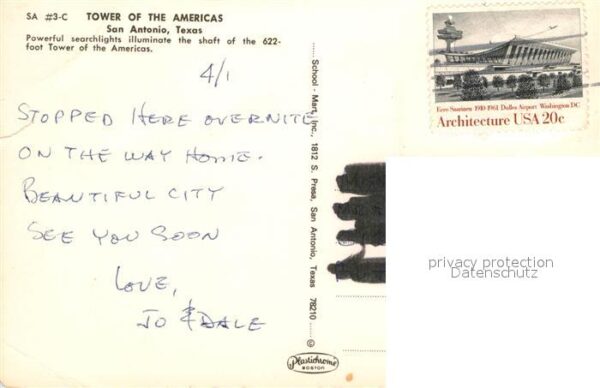 SA #3-C TOWER OF THE AMERICAS
San Antonio, Texas
Powerful searchlights illuminate the shaft of the 622-
foot Tower of the Americas.
4/1
STOPPED HERE OVERNITE
ON THE WAY HOME.
BEAUTIFUL CITY
SEE YOU SOON
LOVE,
JO & DALE
School - Mart, Inc., 1812 S. Presa, San Antonio, Texas 78210
©
Plastichrome
BOSTON
Eero Saarinen 1910-1961 Dulles Airport Washington DC
Architecture USA 20c
privacy protection
Datenschutz